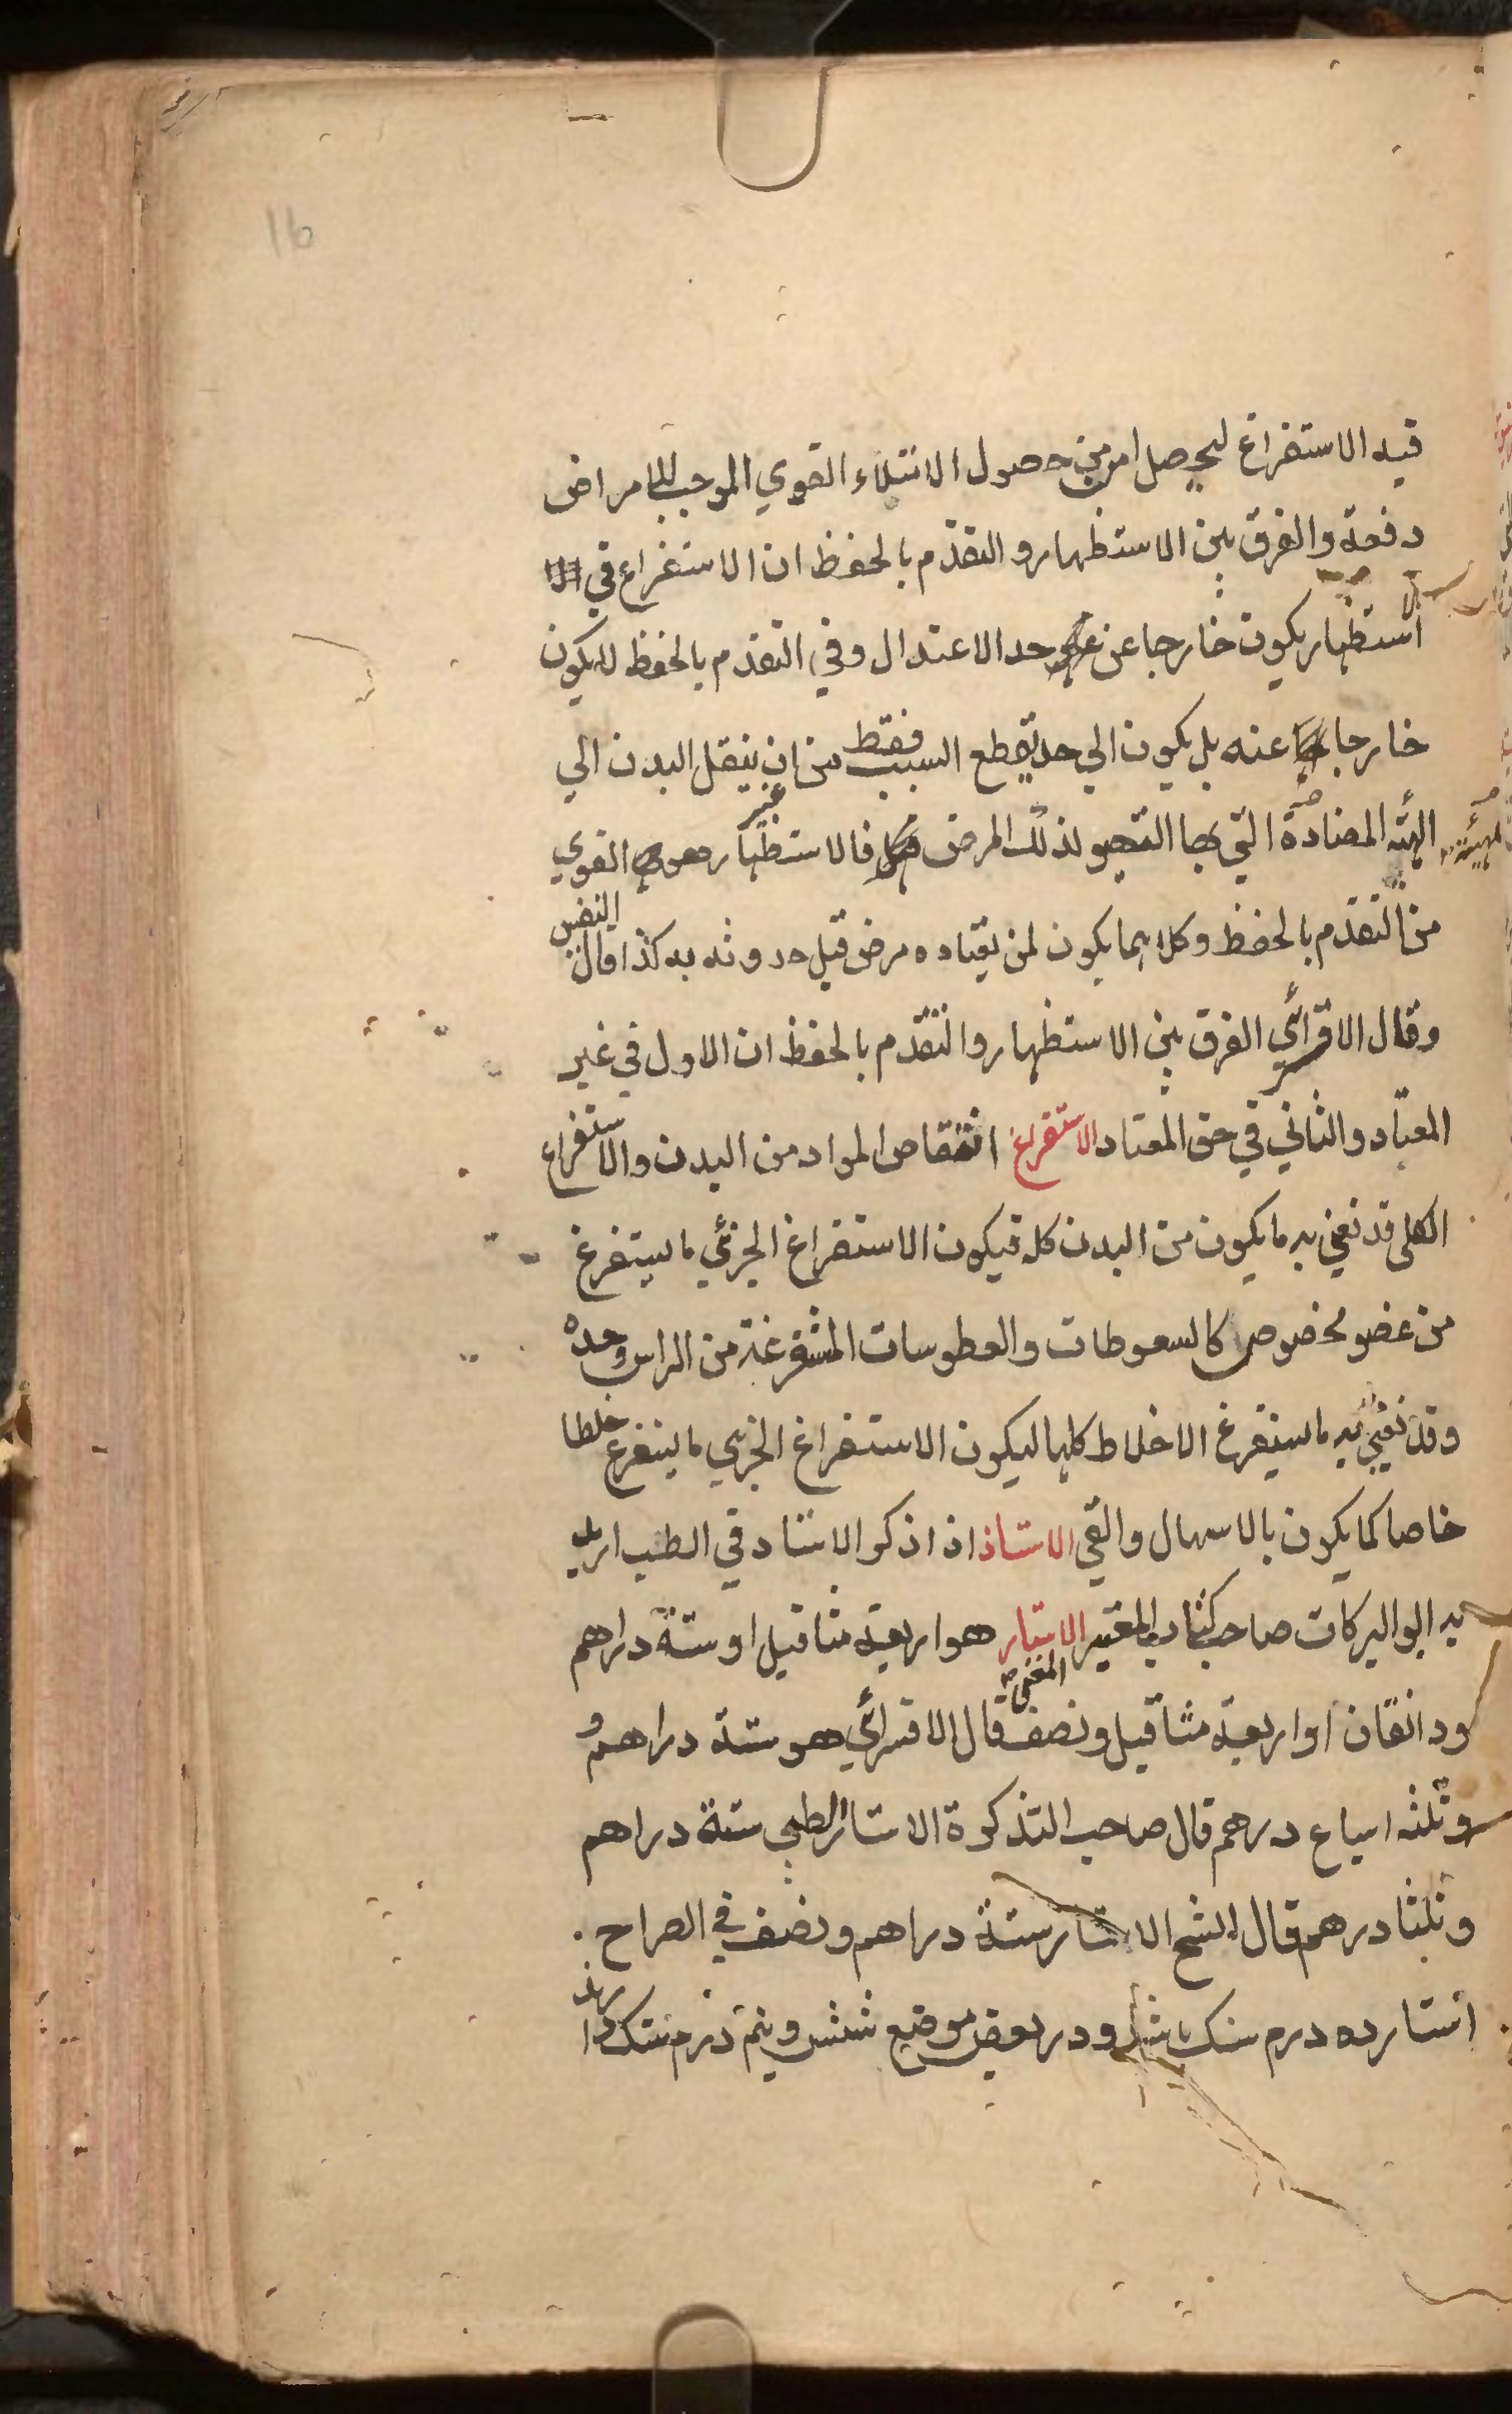 16
قيه الاستفراغ ليحصل امن من حصول الامتلاء القوي الموجب للامراض
دفعة والفرق بين الاستظهار والتقدم بالحفظ ان الاستفراغ في الا
استظهار يكون خارجا عن حد الاعتدال وفي التقدم بالحفظ لا يكون
خارجا عنه بل يكون الي حد يقطع السبب فقط من ان ينقل البدن الي
الهئة المضادة التي بها التهيو لذلك المرض فالاستظهار هو القوي
من التقدم بالحفظ وكلاهما يكون لمن يعتاده مرض قبل حدوثه به كذا قال النفيس
وقال الاقسرائي الفرق بين الاستظهار والتقدم بالحفظ ان الاول في غير
المعتاد والثاني في حق المعتاد الاستفراغ انتقاص المواد من البدن والاستفراغ
الكلي قد نعني به ما يكون من البدن كله فيكون الاستفراغ الجزئي ما يستفرغ
من عضو مخصوص كالسعوطات والعطوسات المستفرغة من الراس وحده
وقد نعني به ما يستفرغ الاخلاط كلها ليكون الاستفراغ الجزئي ما يستفرغ خلطا
خاصا كما يكون بالاسهال والقي الاستاذ اذا ذكر الاستاد في الطب اريد
به ابو البركات صاحب كتاب المعتبر الاستار هو اربعة مثاقيل او ستة دراهم
ودانقان او اربعة مثاقيل ونصف المغني قال الاقسرائي هو ستة دراهم و
وثلثه اسباع درهم قال صاحب التذكرة الاستار الطبي ستة دراهم
وثلثا درهم قال الشيخ الاستار ستة دراهم ونصف في الصراح .
استار ده درم سنك باشد ودر بعض موضع شش ونيم درم سنك را